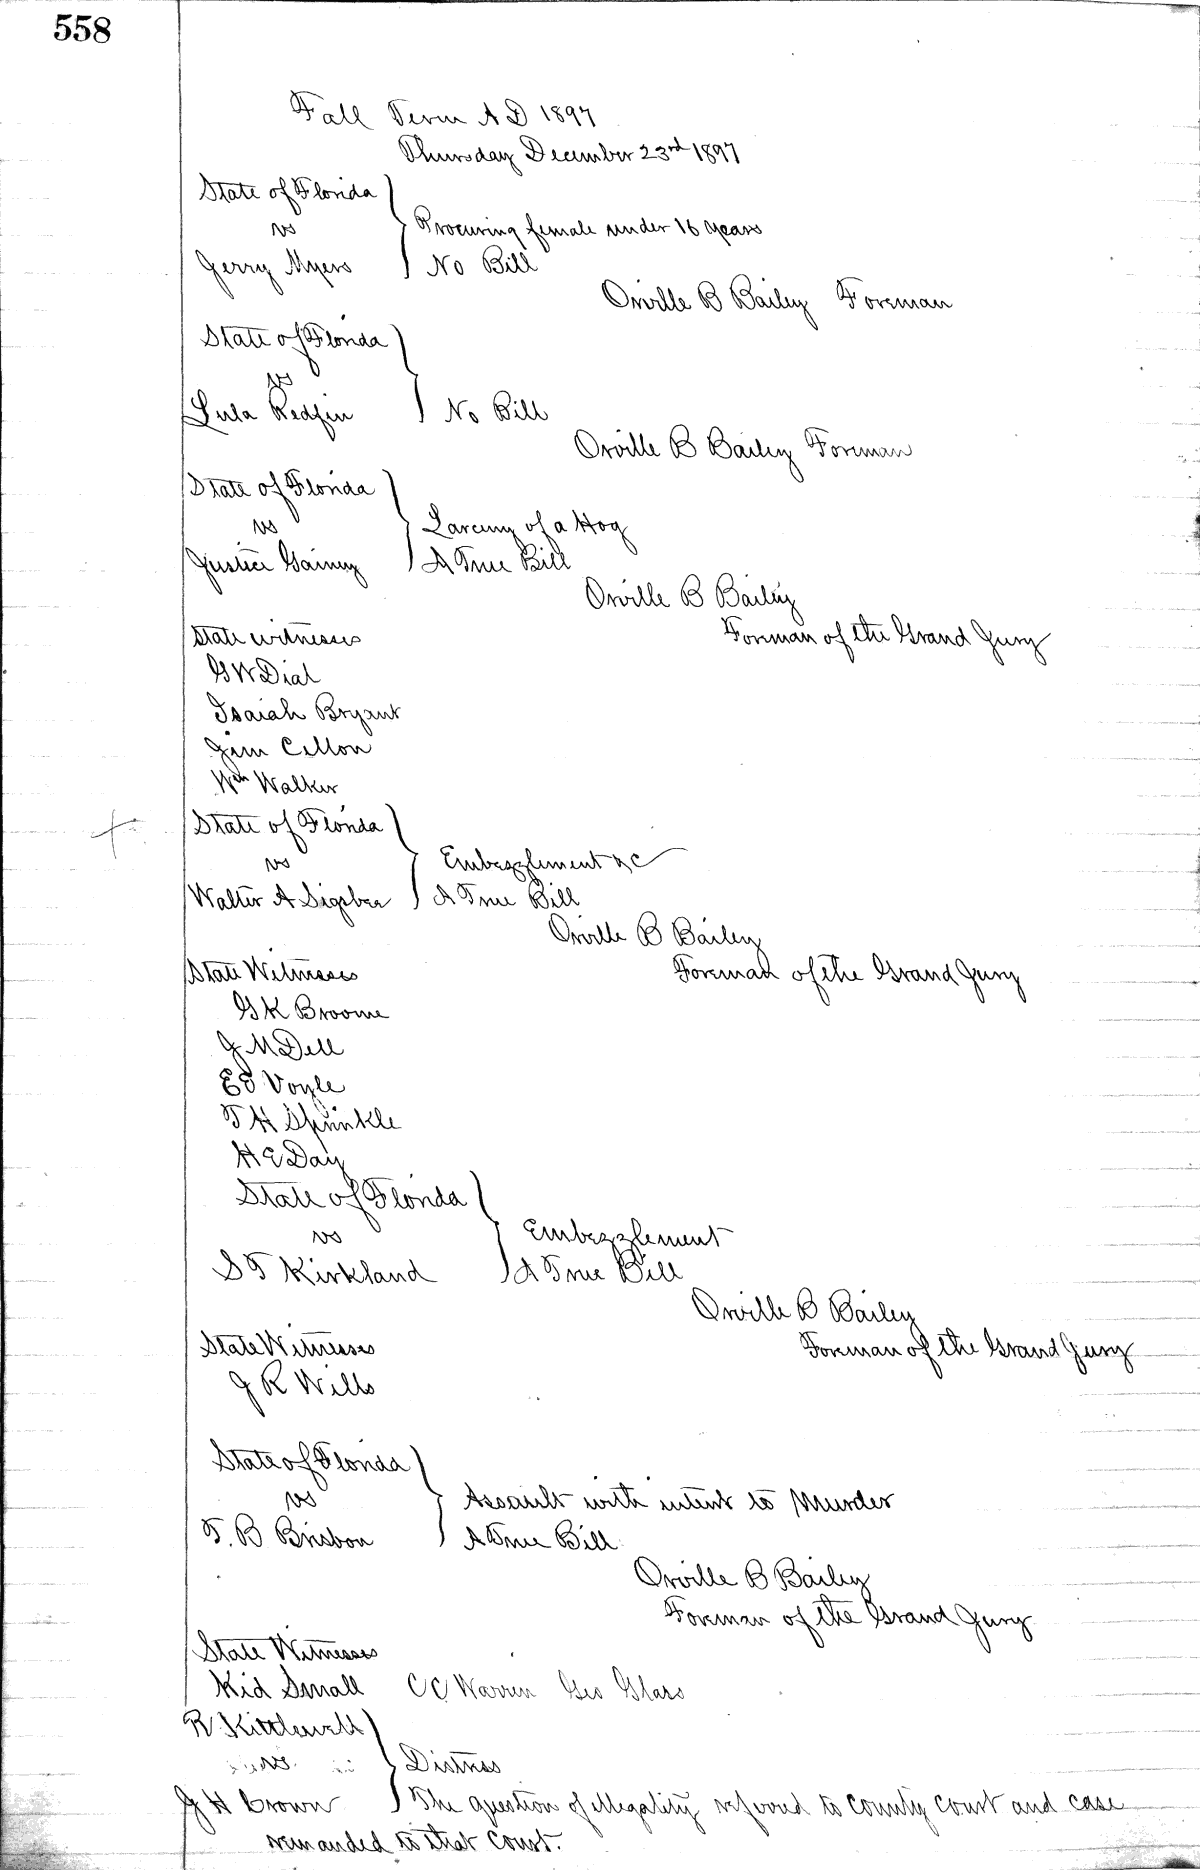 558
Fall Term A D 1897
Thursday December 23rd 1897
State of Florida
vs
Procuring female under 16 years
Gerry Myers
No Bill
Orville B Bailey Foreman
State of Florida
vs
Lula Redfin
No Bill
Orville B Bailey Foreman
State of Florida
vs
Larceny of a Hog
Justice Gainey
A True Bill
Orville B Bailey
State witnesses
Foreman of the Grand Jury
G W Dial
Isaiah Bryant
Jim Cellon
Wm Walker
State of Florida
vs
Embezzlement &C
Walter A Sigsbee
A True Bill
Orville B Bailey
State Witnesses
Foreman of the Grand Jury
G K Broome
J M Dell
E E Voyle
T H Sprinkle
H E Day
State of Florida
vs
Embezzlement
S T Kirkland
A True Bill
Orville B Bailey
State Witnesses
Foreman of the Grand Jury
J R Wills
State of Florida
vs
Assault with intent to Murder
T. B Brisbon
A True Bill
Orville B Bailey
Foreman of the Grand Jury
State Witnesses
Kid Small C C Warren Geo Glass
R Kittlewell
vs
Distress
J H Brown
The question of illegality referred to County Court and case
remanded to that Court.